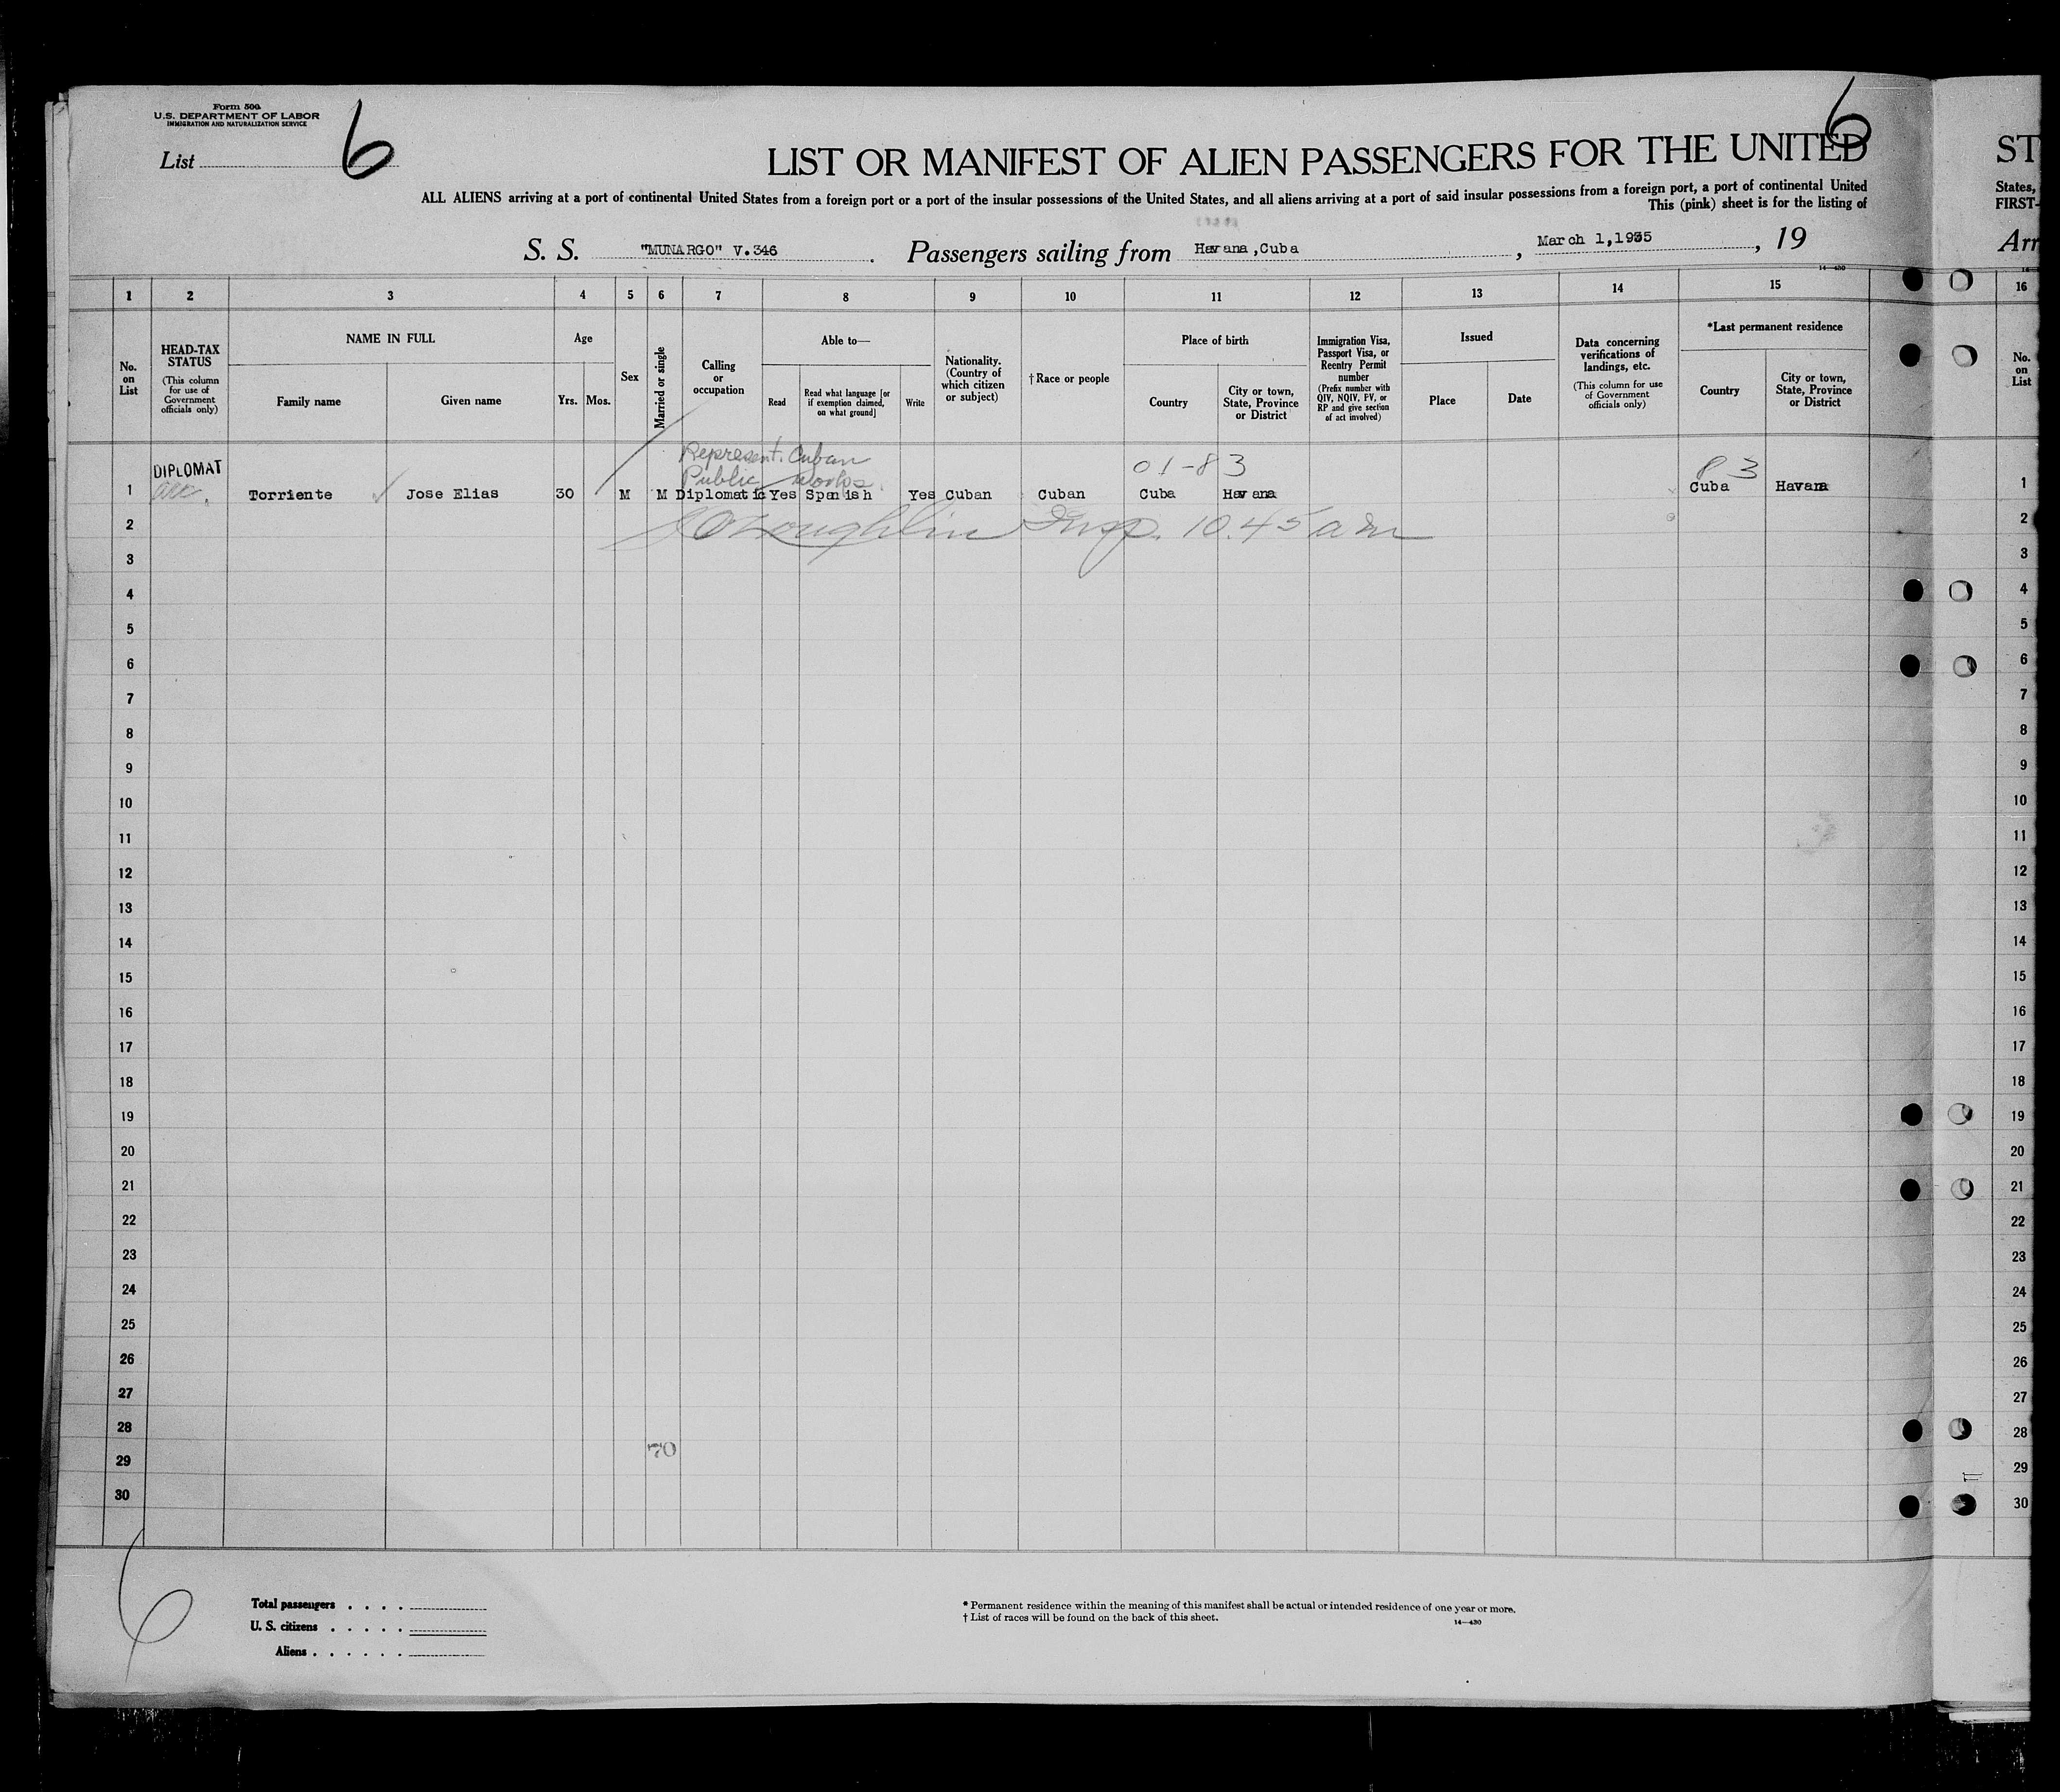 Form 500
U.S. DEPARTMENT OF LABOR
IMMIGRATION AND NATURALIZATION SERVICE
List 6
6
LIST OR MANIFEST OF ALIEN PASSENGERS FOR THE UNITED
ST
ALL ALIENS arriving at a port of continental United States from a foreign port or a port of the insular possessions of the United States, and all aliens arriving at a port of said insular possessions from a foreign port, a port of continental United
States,
This (pink) sheet is for the listing of
FIRST-
S. S. "MUNARGO" V.346. Passengers sailing from Havana,Cuba, March 1,1935, 19
Arr
14—430
1 2 3 4 5 6 7 8 9 10 11 12 13 14 15 16
No. on List
HEAD-TAX STATUS
(This column for use of Government officials only)
NAME IN FULL
Family name
Given name
Age
Yrs.
Mos.
Sex
Married or single
Calling or occupation
Able to—
Read
Read what language [or if exemption claimed, on what ground]
Write
Nationality. (Country of which citizen or subject)
† Race or people
Place of birth
Country
City or town, State, Province or District
Immigration Visa, Passport Visa, or Reentry Permit number
(Prefix number with QIV, NQIV, PV, or RP and give section of act involved)
Issued
Place
Date
Data concerning verifications of landings, etc.
(This column for use of Government officials only)
*Last permanent residence
Country
City or town, State, Province or District
No. on List
Represent. Cuban
Public Works.
DIPLOMAT
01-83
83
1 Torriente Jose Elias 30 M M Diplomatic Yes Spanish Yes Cuban Cuban Cuba Havana Cuba Havana 1
2 O'Loughlin Insp. 10.45 am 2
3 3
4 4
5 5
6 6
7 7
8 8
9 9
10 10
11 11
12 12
13 13
14 14
15 15
16 16
17 17
18 18
19 19
20 20
21 21
22 22
23 23
24 24
25 25
26 26
27 27
28 28
70
29 29
30 30
6
Total passengers . . . .
U. S. citizens . . . . .
Aliens . . . . . .
* Permanent residence within the meaning of this manifest shall be actual or intended residence of one year or more.
† List of races will be found on the back of this sheet.
14—430